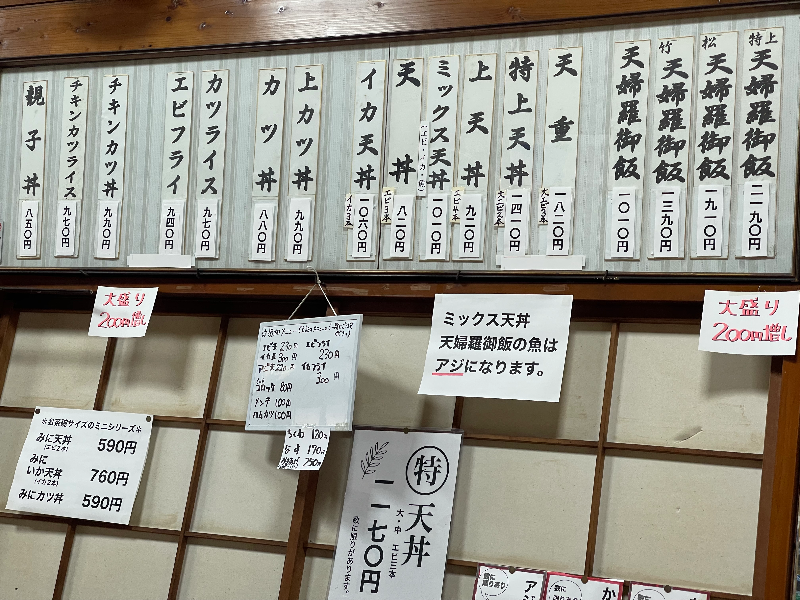 特上 天婦羅御飯
二一九〇円
松 天婦羅御飯
一九一〇円
竹 天婦羅御飯
一三九〇円
天婦羅御飯
一〇一〇円
天重
大エビ3本
一八二〇円
特上天丼
大エビ2本
一四一〇円
上天丼
エビ4本
九二〇円
ミックス天丼
(エビ・イカ・魚)
一〇一〇円
天丼
エビ3本
八二〇円
イカ天丼
イカ3本
一〇六〇円
上カツ丼
九九〇円
カツ丼
八八〇円
カツライス
九七〇円
エビフライ
九四〇円
チキンカツ丼
九九〇円
チキンカツライス
九七〇円
親子丼
八五〇円
大盛り
200円増し
大盛り
200円増し
ミックス天丼
天婦羅御飯の魚は
アジになります。
エビ天 230円
エビフライ
230円
イカ天 300円
イカフライ
300円
コロッケ 80円
メンチ 100円
ハムカツ 100円
ちくわ 120
なす 170
*お茶碗サイズのミニシリーズ*
みに天丼 590円
(エビ2本)
みに
いか天丼 760円
(イカ2本)
みにカツ丼 590円
特 天丼
大・中 エビ三本
一一七〇円
数に限りがあります。
数に
限りあり
ア
数に
限りあり
か